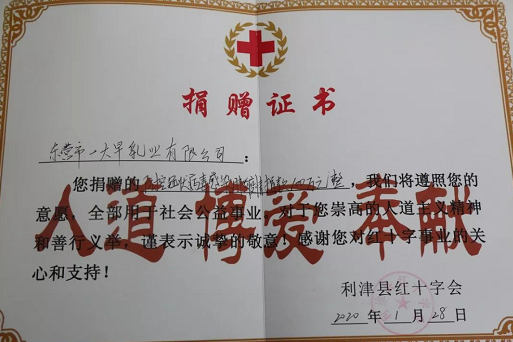 捐赠证书
东营市一大早乳业有限公司：
您捐赠的 整，我们将遵照您的
意愿，全部用于社会公益事业。对于您崇高的人道主义精神
和善行义举，谨表示诚挚的敬意！感谢您对红十字事业的关
心和支持！
人道 博爱 奉献
利津县红十字会
2020年1月28日